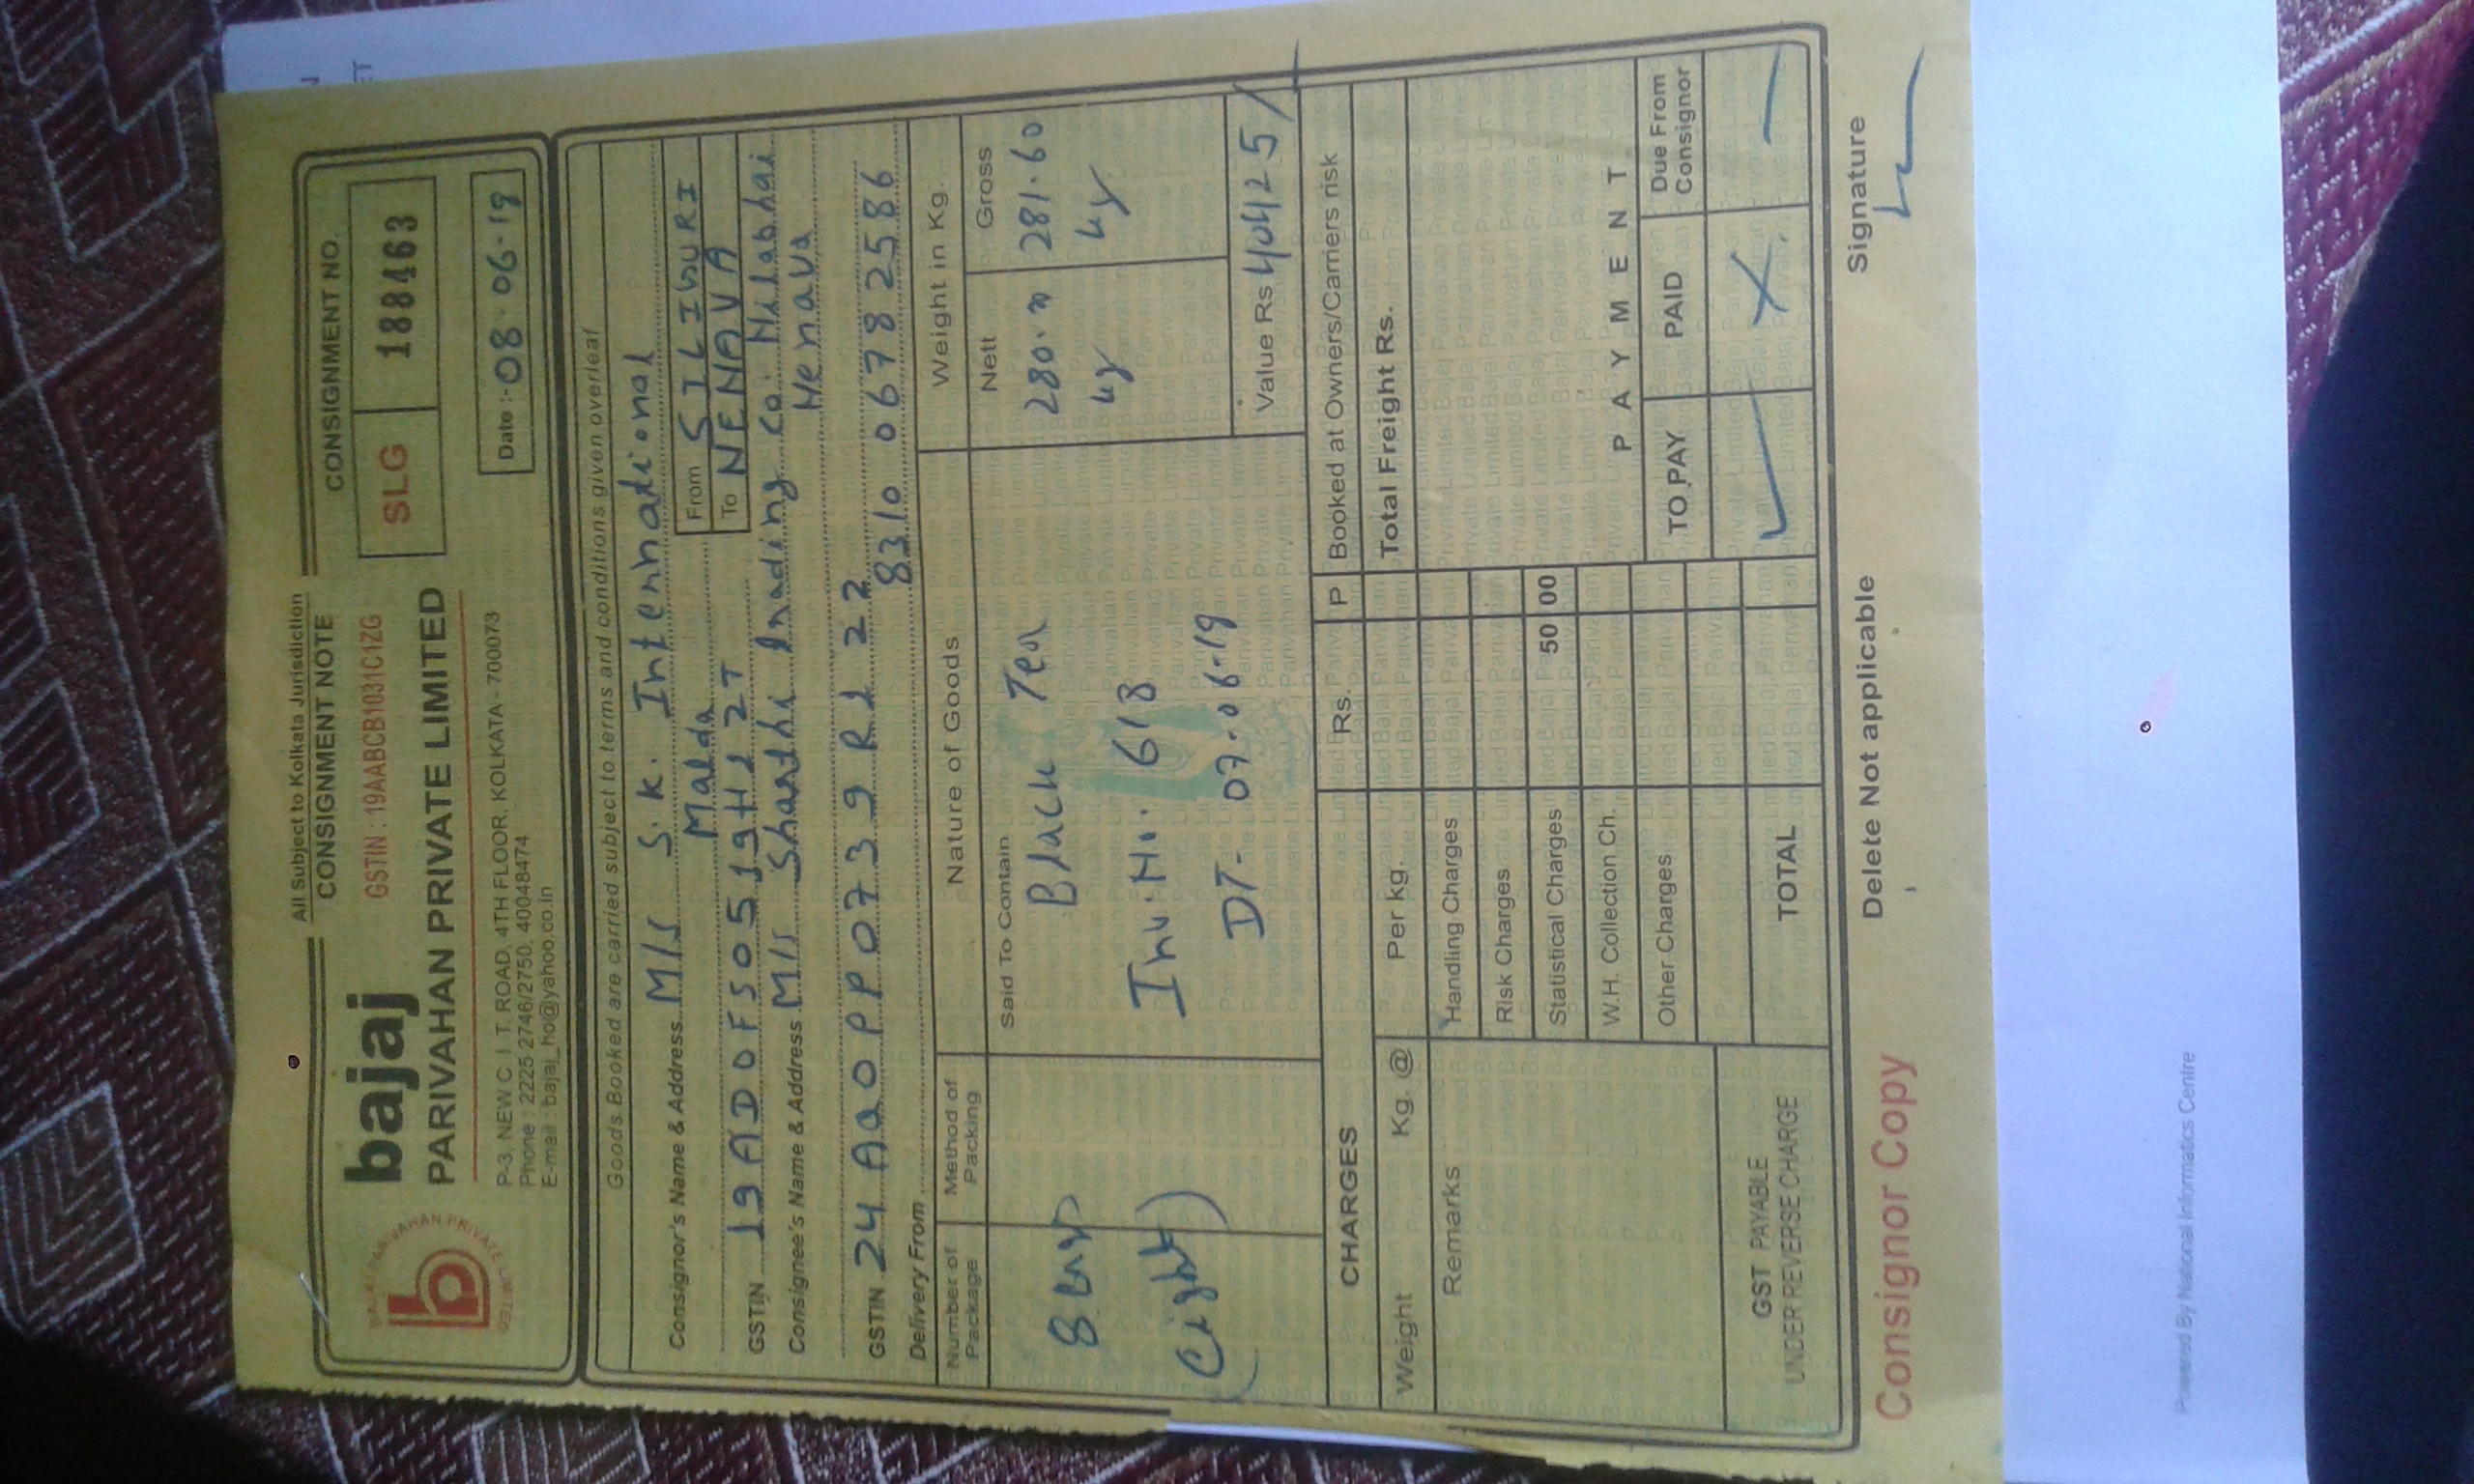 All Subject to Kolkata Jurisdiction
CONSIGNMENT NOTE
CONSIGNMENT NO.
GSTIN : 19AABCB1031C1ZG
SLG 188463
bajaj
PARIVAHAN PRIVATE LIMITED
P-3, NEW C. I. T. ROAD, 4TH FLOOR, KOLKATA - 700073
Phone : 2225 2746/2750, 40048474
E-mail : bajaj_ho@yahoo.co.in
Date :- 08.06.19
Goods Booked are carried subject to terms and conditions given overleaf
Consignor's Name & Address M/s S.K. International
Malda
From SILIGURI
To NENAVA
GSTIN 19ADOFS0519H1ZT
Consignee's Name & Address M/s Sharthi Trading Co: Nilabhai
Nenava
GSTIN 24AQOPP0739R1ZZ
8310 0678 2586
Delivery From
Number of Package
Method of Packing
Nature of Goods
Weight in Kg.
Said To Contain
Nett
Gross
8 Bags
(Eight)
Black Tea
Inv. No. 618
DT- 07-06-19
280.00 kg
281.60 kg
Value Rs 40425/
CHARGES
Rs. P
Booked at Owners/Carriers risk
Weight Kg. @ Per kg.
Total Freight Rs.
Remarks
Handling Charges
Risk Charges
Statistical Charges 50 00
W.H. Collection Ch.
Other Charges
TOTAL
PAYMENT
TO PAY
PAID
Due From Consignor
GST PAYABLE
UNDER REVERSE CHARGE
Consignor Copy
Delete Not applicable
Signature
Powered By National Informatics Centre